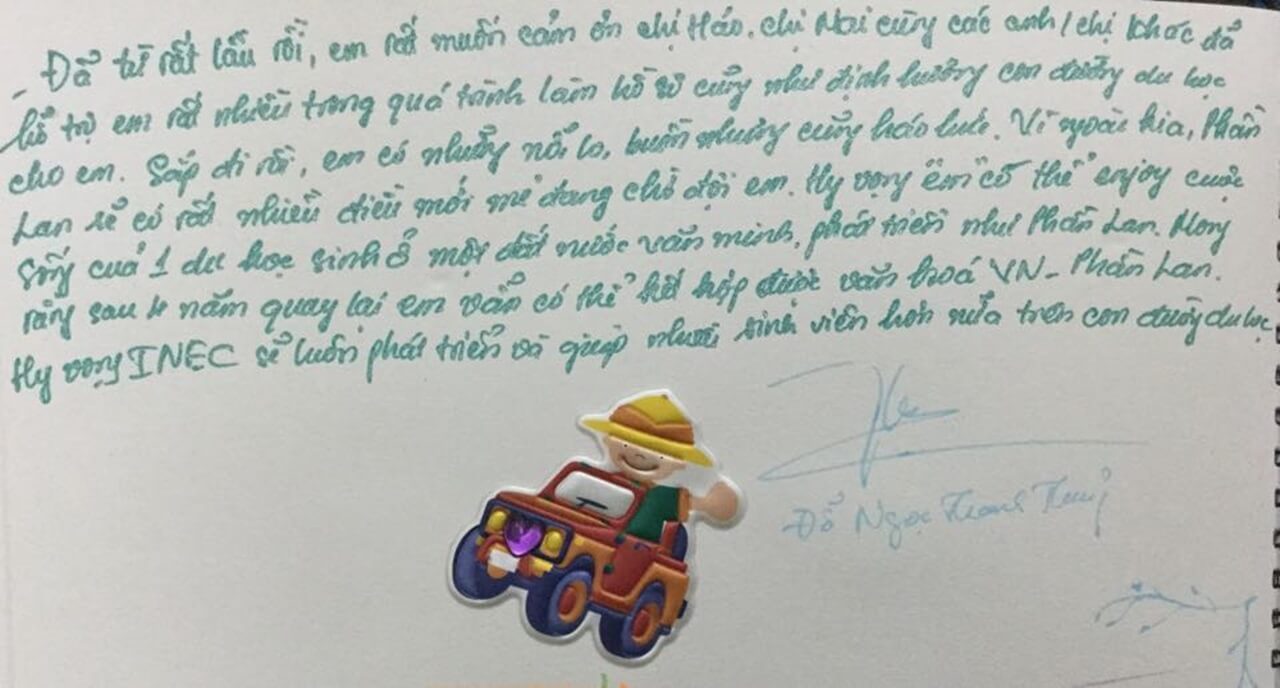 - Đã từ rất lâu rồi, em rất muốn cảm ơn chị Hảo, chị Mai cùng các anh/chị khác đã
hỗ trợ em rất nhiều trong quá trình làm hồ sơ cũng như định hướng con đường du học
cho em. Sắp đi rồi, em có những nỗi lo, buồn nhưng cũng háo hức. Vì ngoài kia, Phần
Lan sẽ có rất nhiều điều mới mẻ đang chờ đợi em. Hy vọng em có thể enjoy cuộc
sống của 1 du học sinh ở một đất nước văn minh, phát triển như Phần Lan. Mong
rằng sau 4 năm quay lại em vẫn có thể kết hợp được văn hoá VN - Phần Lan.
Hy vọng INEC sẽ luôn phát triển và giúp nhiều sinh viên hơn nữa trên con đường du học
Đỗ Ngọc Thanh